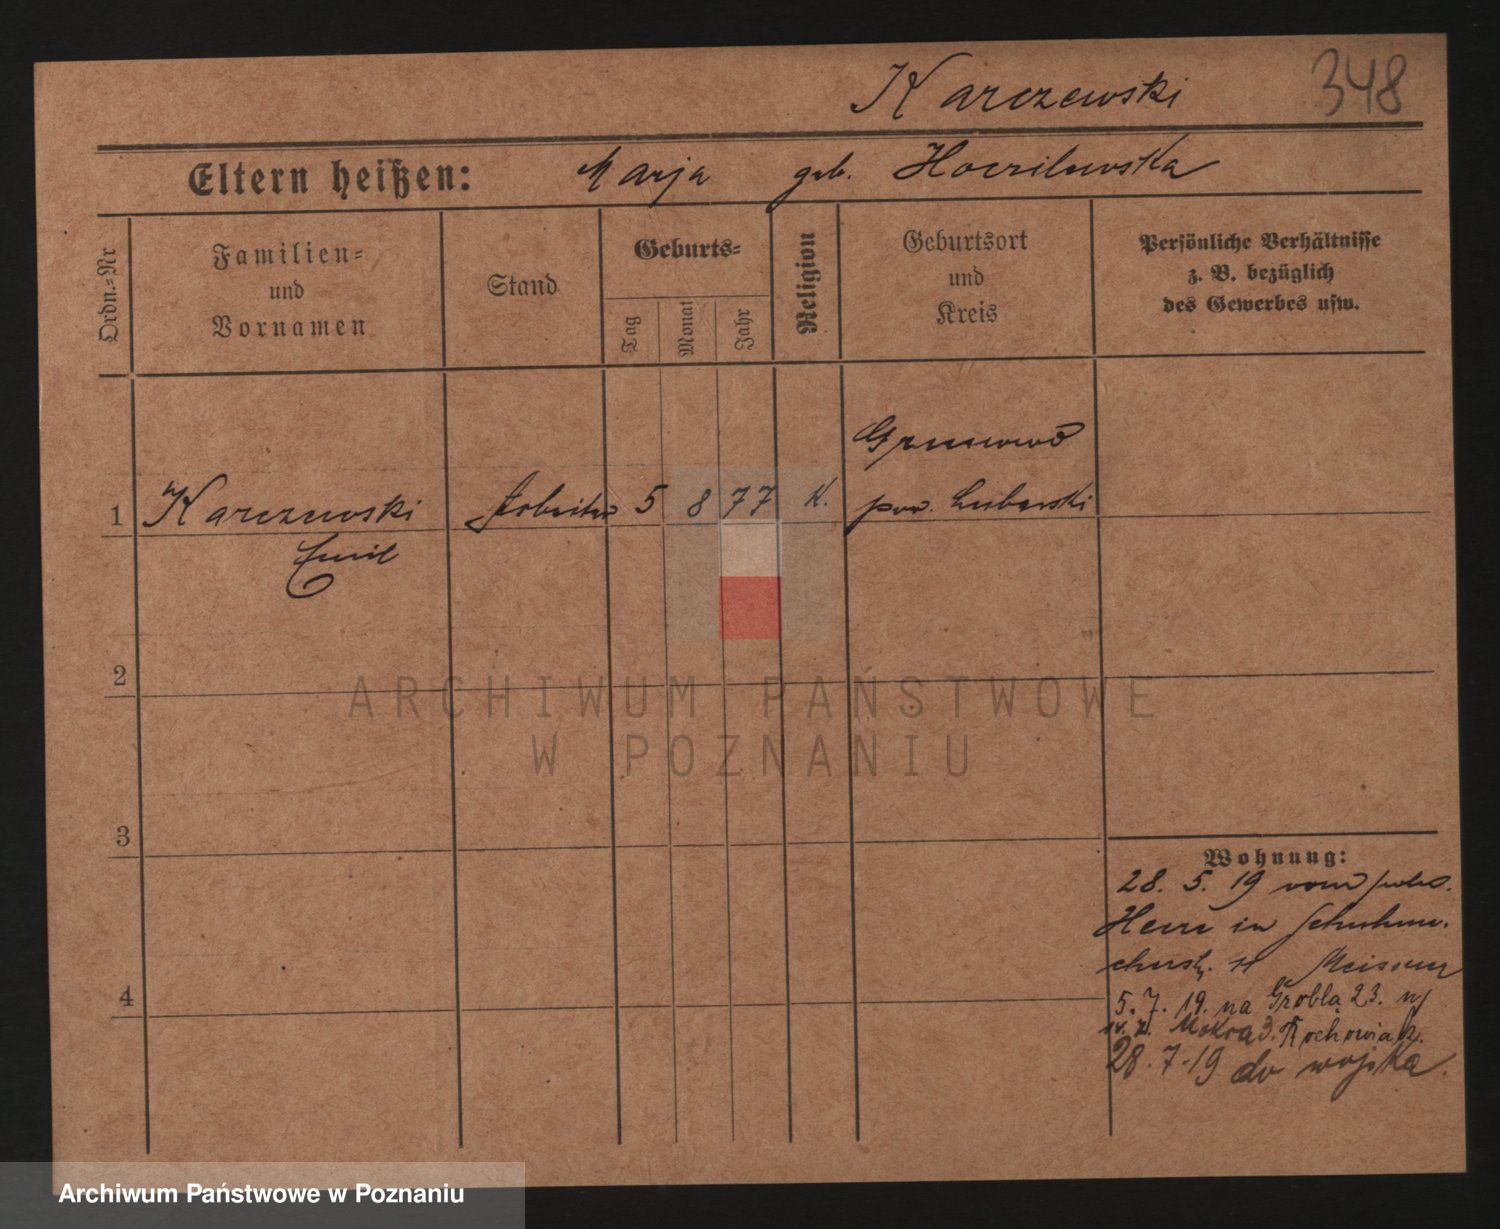 Karczewski 348
Eltern heißen: Marja geb.
Ordn.=Nr
Familien=
und
Vornamen
Stand
Geburts=
Tag
Monat
Jahr
Religion
Geburtsort
und
Kreis
Persönliche Verhältnisse
z. B. bezüglich
des Gewerbes usw.
1 Karczewski Arbeiter 5 8 77 K. pow.
Emil
2
ARCHIWUM PAŃSTWOWE
W POZNANIU
3
4
Wohnung:
28. 5. 19 vom
in Schuhma-
cherstr. 11
5. 7. 19. na Grobla 23.
Mokra 3.
28. 7-19 do wojska.
Archiwum Państwowe w Poznaniu